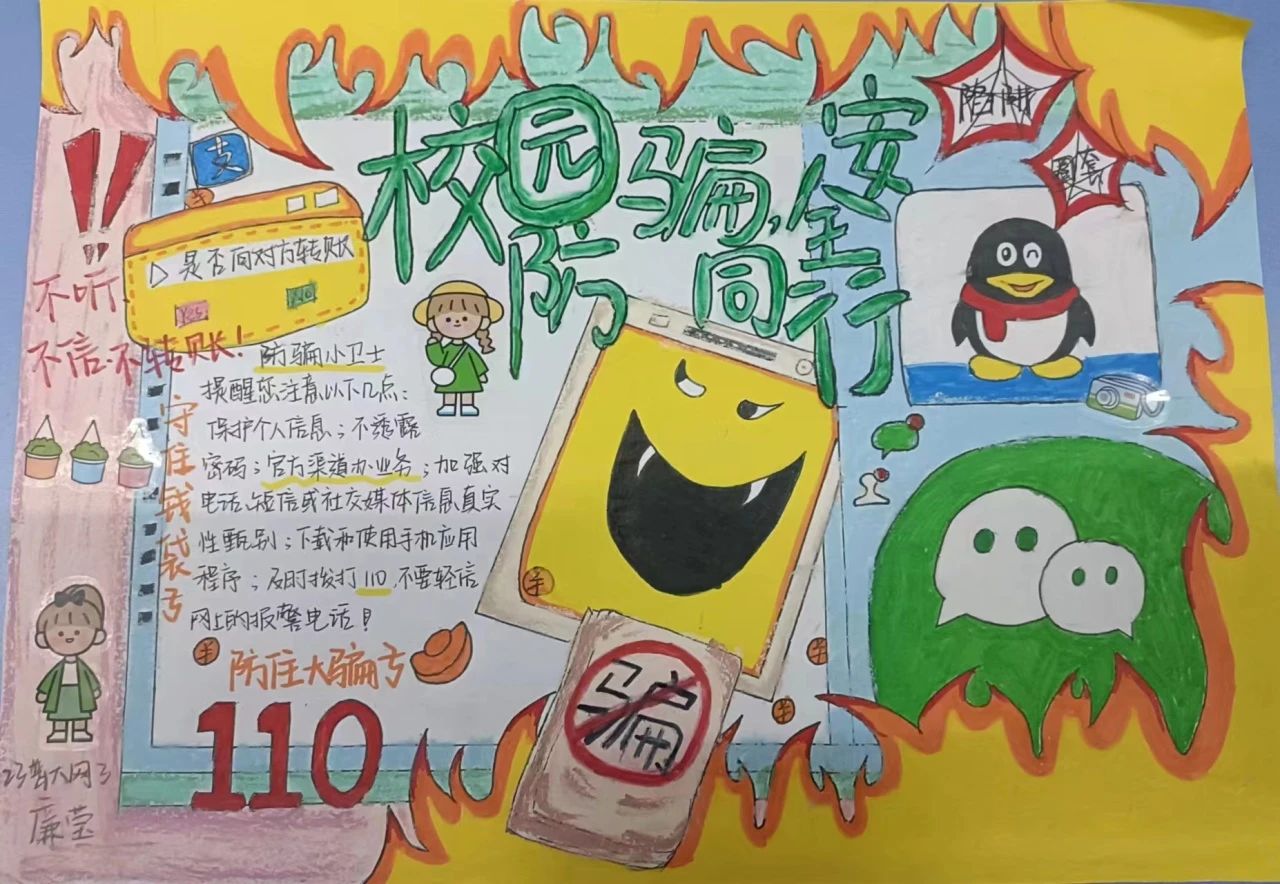 校园防骗,安全同行
陷阱
圈套
支
▷是否向对方转账
YES
NO
!!
不听、
不信、不转账!
防骗小卫士
提醒您注意以下几点:
保护个人信息;不透露
密码;官方渠道办业务;加强对
电话、短信或社交媒体信息真实
性甄别;下载和使用手机应用
程序;及时拨打110,不要轻信
网上的报警电话!
守住钱袋子
防住大骗子
110
骗
廉莹